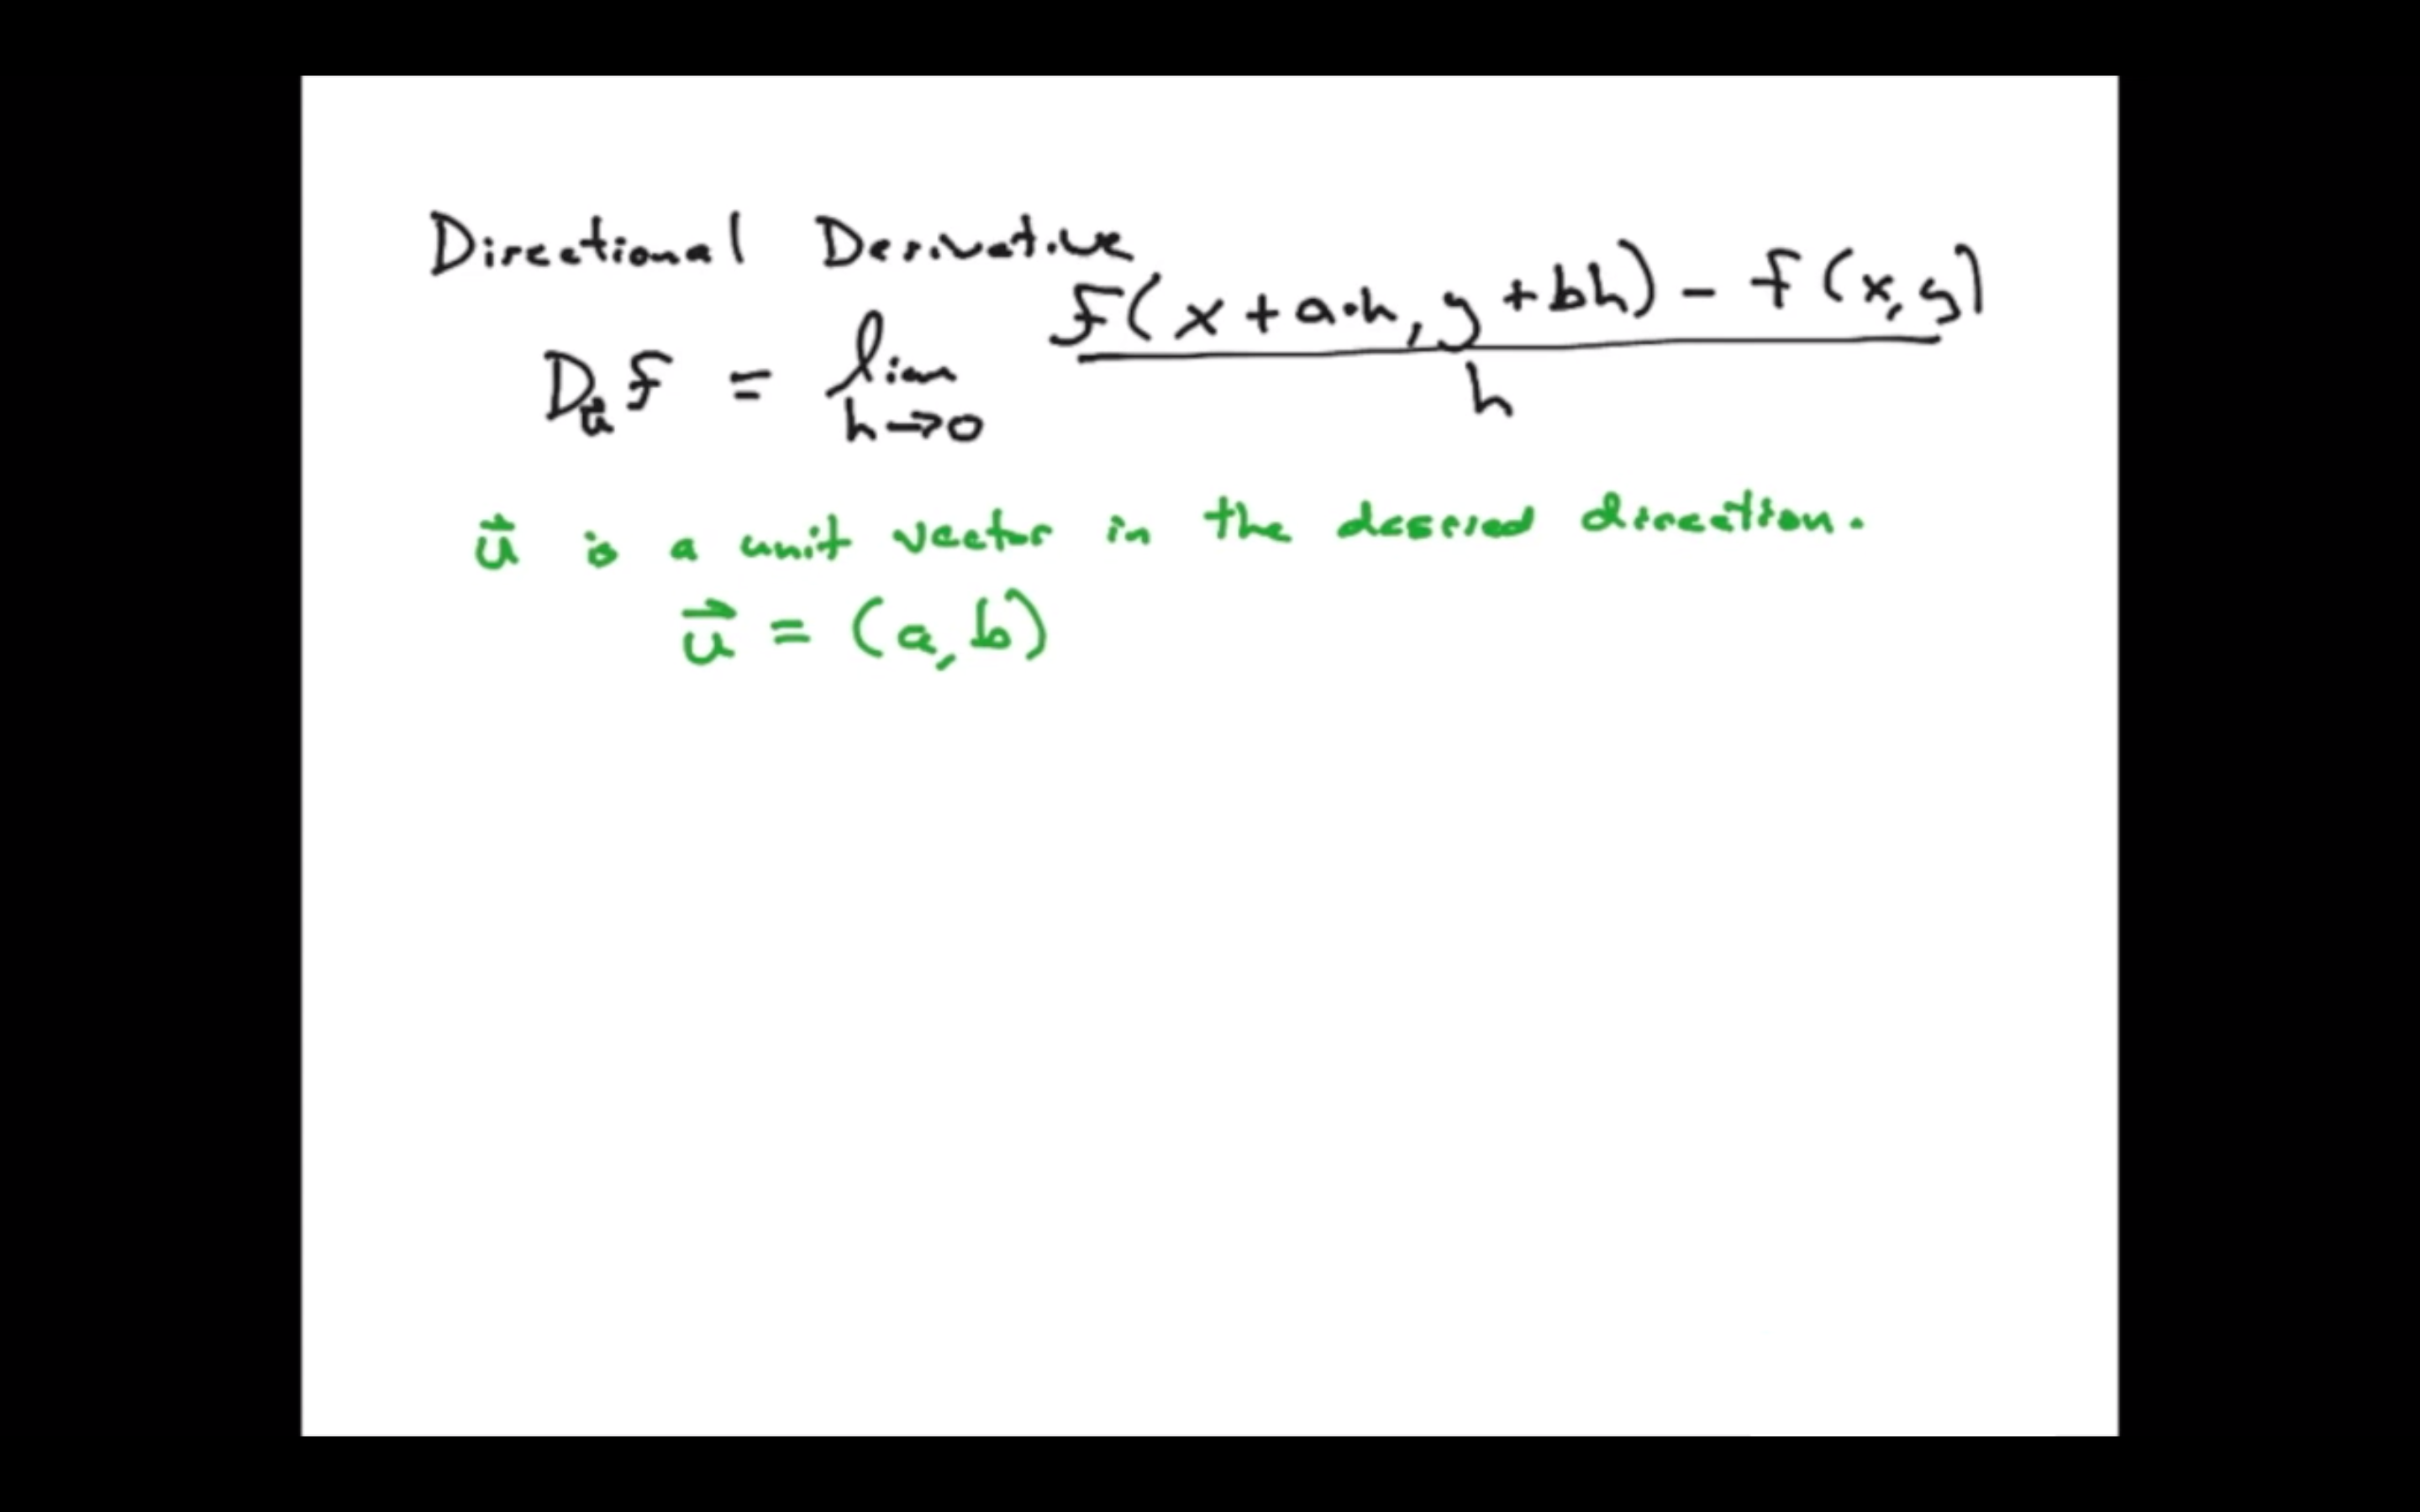 Directional Derivative
D_u⃗ f = lim h→0 f(x + a·h, y + bh) - f(x, y) / h
u⃗ is a unit vector in the desired direction.
u⃗ = (a, b)